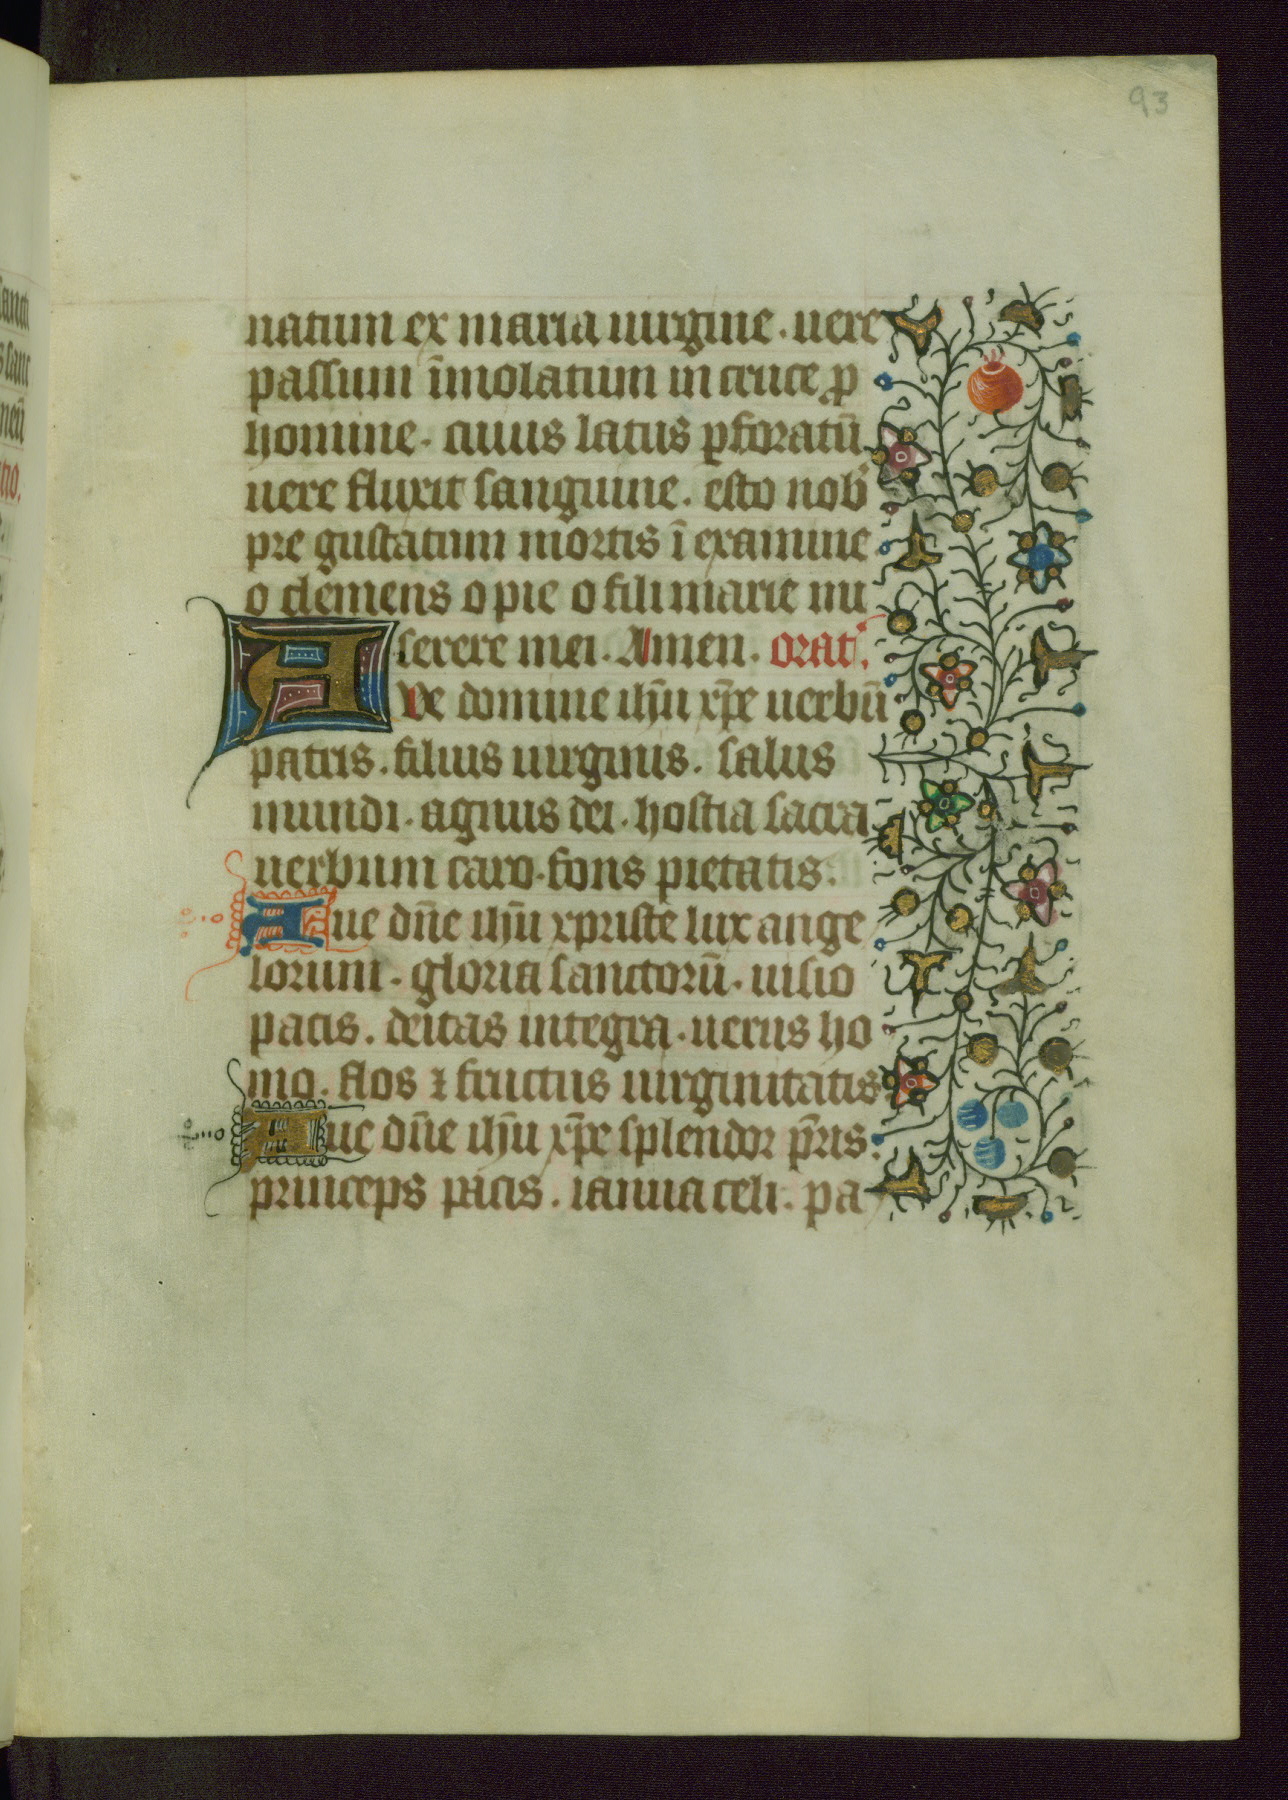 93
natum ex maria uirgine. uere
passum īmolatum in cruce ꝓ
homine. cuius latus ꝑforatū
uere fluxit sanguine. esto nob̾
pre gustatum mortis ī examine
o clemens o pie o fili marie mi
serere mei. Amen. orat̾.
AVe domine ihū xp̄e uerbū
patris. filius uirginis. salus
mundi. agnus dei. hostia sacra
uerbum caro. fons pietatis.
Aue dn̄e ihū xpriste lux ange
lorum. gloria sanctorū. uisio
pacis. deitas integra. uerus ho
mo. flos ⁊ fructus uirginitatis
Aue dn̄e ihū xp̄e splendor pr̄is.
princeps pacis. ianua celi. pa